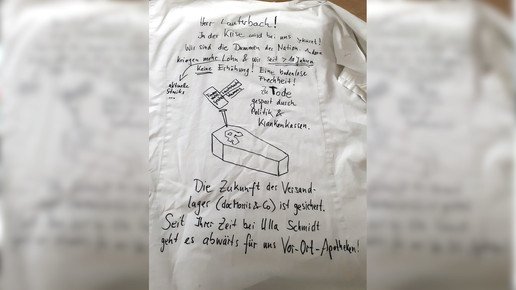 Herr Lauterbach!
In der Krise wird bei uns gespart!
Wir sind die Dummen der Nation. Andere
kriegen mehr Lohn & wir seit > 10 Jahren
keine Erhöhung! Eine bodenlose
Frechheit!
aktuelle
Streiks
...
zu Tode
gespart durch
Politik &
Krankenkassen.
Die Zukunft der Versand-
lager (docMorris & Co) ist gesichert.
Seit Ihrer Zeit bei Ulla Schmidt
geht es abwärts für uns Vor-Ort-Apotheken!